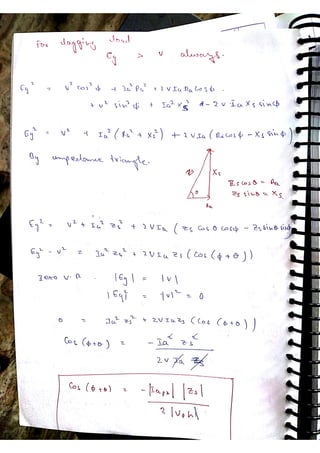 For lagging load
Eg > V always.
Eg² = V² cos²φ + Ia² Ra² + 2VIaRa cosφ
+ V² sin²φ + Ia² Xs² - 2V Ia Xs sinφ
Eg² = V² + Ia² (Ra² + Xs²) + 2VIa (Ra cosφ - Xs sinφ)
By impedance triangle.
Xs
θ
Ra
Zs cosθ = Ra
Zs sinθ = Xs
Eg² = V² + Ia² Zs² + 2VIa (Zs cosθ cosφ - Zs sinθ sinφ)
Eg² - V² = Ia² Zs² + 2VIa Zs (cos(φ+θ))
Zero V.R |Eg| = |V|
|Eg|² - |V|² = 0
0 = Ia² Zs² + 2VIaZs (cos(φ+θ))
Cos(φ+θ) = -Ia² Zs² / 2V Ia Zs
Cos(φ+θ) = -|Iaph| |Zs| / 2|Vph|